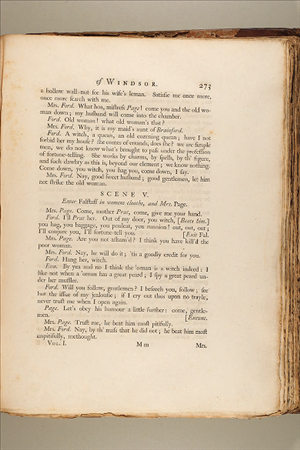 of WINDSOR. 273
a hollow wall-nut for his wife's leman. Satisfie me once more,
once more search with me.
Mrs. Ford. What hoa, mistress Page! come you and the old wo-
man down; my husband will come into the chamber.
Ford. Old woman! what old woman's that?
Mrs. Ford. Why, it is my maid's aunt of Brainford.
Ford. A witch, a quean, an old cozening quean; have I not
forbid her my house? she comes of errands, does she? we are simple
men, we do not know what's brought to pass under the profession
of fortune-telling. She works by charms, by spells, by th' figure,
and such dawbry as this is, beyond our element; we know nothing.
Come down, you witch, you hag you, come down, I say.
Mrs. Ford. Nay, good sweet husband; good gentlemen, let him
not strike the old woman.
SCENE V.
Enter Falstaff in womens cloaths, and Mrs. Page.
Mrs. Page. Come, mother Prat, come, give me your hand.
Ford. I'll Prat her. Out of my door, you witch, [Beats him.]
you hag, you baggage, you poulcat, you runnion! out, out, out;
I'll conjure you, I'll fortune-tell you. [Exit Fal.
Mrs. Page. Are you not asham'd? I think you have kill'd the
poor woman.
Mrs. Ford. Nay, he will do it; 'tis a goodly credit for you.
Ford. Hang her, witch.
Evan. By yea and no I think the 'oman is a witch indeed: I
like not when a 'oman has a great peard; I spy a great peard un-
der her muffler.
Ford. Will you follow, gentlemen? I beseech you, follow; see
but the issue of my jealousie; if I cry out thus upon no tryale,
never trust me when I open again.
Page. Let's obey his humour a little further: come, gentle-
men. [Exeunt.
Mrs. Page. Trust me, he beat him most pitifully.
Mrs. Ford. Nay, by th' mass that he did not; he beat him most
unpitifully, methought.
VOL. I. M m Mrs.